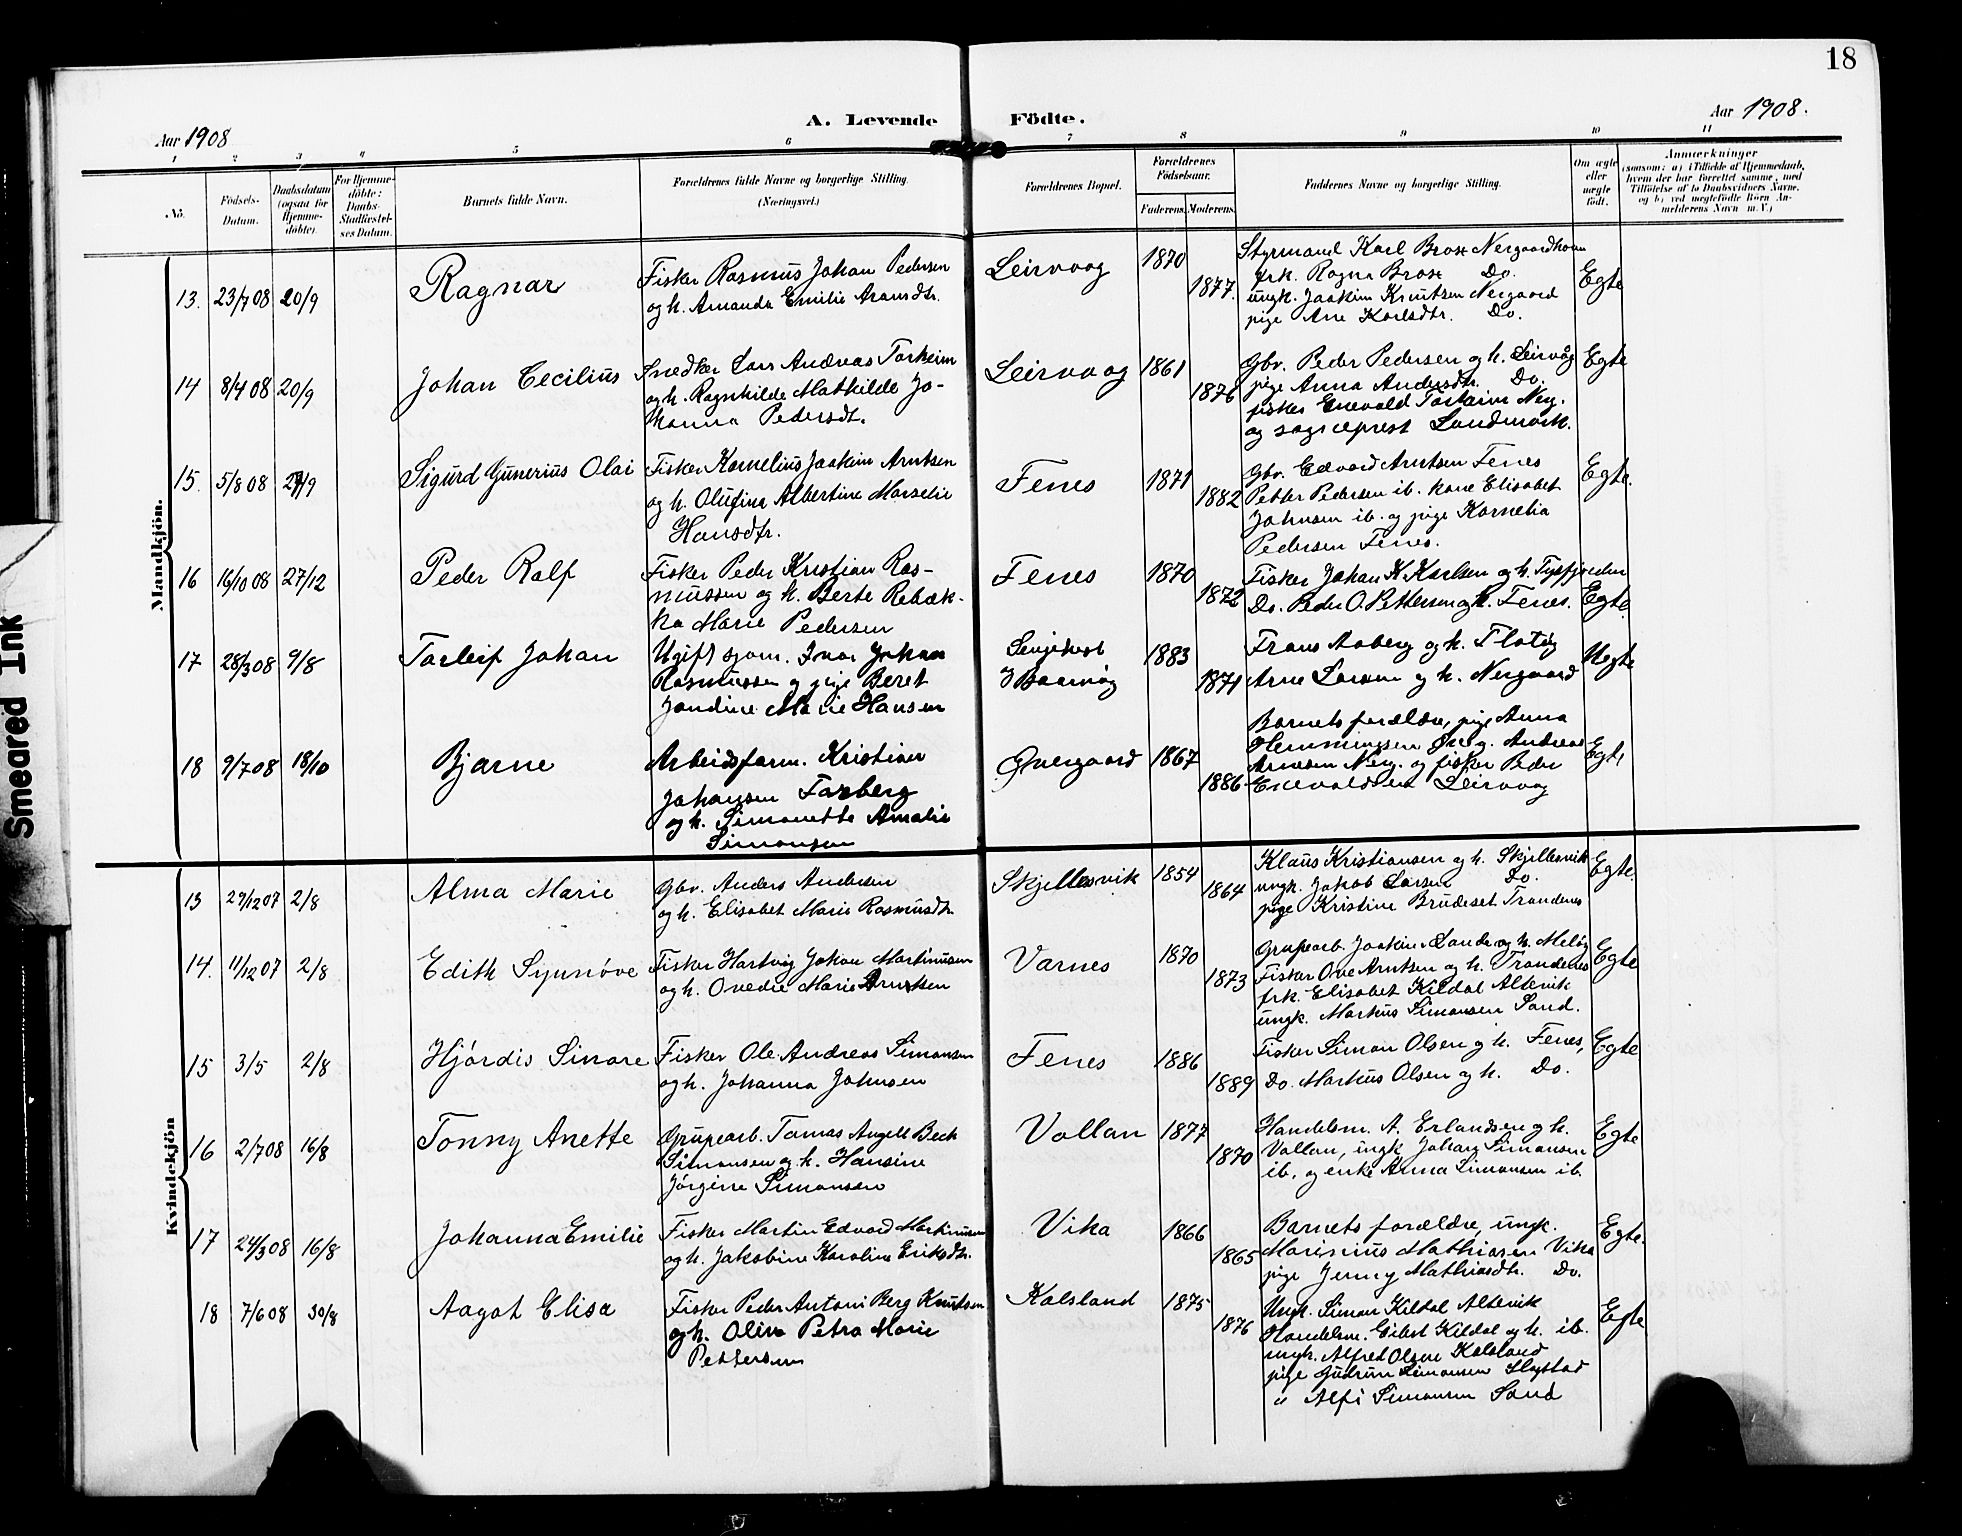 18
Aar 1908
A. Levende Födte.
Aar 1908.
1 2 3 4 5 6 7 8 9 10 11
No.
Födsels-Datum.
Daabsdatum (ogsaa for Hjemme-döbte).
For Hjemme-döbte: Daabs-Stadfæstel-ses Datum.
Barnets fulde Navn.
Forældrenes fulde Navne og borgerlige Stilling.
(Næringsvei.)
Forældrenes Bopæl.
Forældrenes Födselsaar.
Faderens. Moderens.
Faddernes Navne og borgerlige Stilling.
Om ægte eller uægte födt.
Anmærkninger
(saasom: a) i Tilfælde af Hjemmedaab,
hvem der har forrettet samme, med
Tilföielse af to Daabsvidners Navne.
og b) ved uægtefödte Börn An-
melderens Navn m.V.)
Mandkjön.
13. 23/7 08 20/9 Ragnar
Fisker Rasmus Johan Pedersen
og h. Amanda Emilie Aronsdtr.
Leirvaag 1870 1877.
Styrmand Karl Brox Nergaardhavn
frk. Ragna Brox Do.
ungk. Joakim Knutsen Nergaard
pige Ane Karlsdtr. Do.
Egte
14 8/4 08 20/9 Johan Cecilius
Snedker Lars Andreas Torheim
og h. Ragnhilde Mathilde Jo-
hanna Pedersdt.
Leirvaag 1861 1876
Gbr. Peder Pedersen og h. Leirvåg
pige Anna Andersdtr. Do.
fisker Enevold Torheim Nerg.
og sogneprest Landmark.
Egte
15. 5/8 08 /9 Sigurd Gunerius Olai
Fisker Kornelius Joakim Arntsen
og h. Olufina Albertine Marselie
Hansdtr.
Fenes 1871 1882
Gbr. Edvard Arntsen Fenes
Petter Pedersen ib. kone Elisabet
Johnsen ib. og pige Kornelia
Pedersen Fenes.
Egte.
16 16/10 08 27/12 Peder Rolf
Fisker Peder Kristian Ras-
mussen og h. Berte Rebæk-
ka Marie Pedersen
Fenes 1870 1872
Fisker Johan K. Karlsen og h. Tysfjorden
Do. Peder O. Pettersen og h. Fenes.
Egte.
17 28/3 08 9/8 Torleif Johan
Ugift sjøm. Ivar Johan
Rasmussen og pige Beret
Jondine Marie Hansen
1883 1871
Frans Aaberg og h. Flatøy
Arne Larsen og h. Nergaard
Uegte
18 9/7 08 18/10 Bjarne
Arbeidsform. Kristian
Johansen Farberg
og h. Simonette Amalie
Simonsen
Øvergaard 1867 1886
Barnets forældre, pige Anna
Hemmingsen Øverg. Andreas
Arnesen Nerg. og fisker Peder
Enevoldsen Leirvåg
Egte
Kvindekjön
13 27/12 07 2/8 Alma Marie
Gbr. Anders Andersen
og h. Elisabet Marie Rasmusdtr.
Skjellesvik 1854 1864
Klaus Kristiansen og h. Skjellesvik
ungk. Jakob Larsen Do.
pige Kristine Brudeset Trondenes
Egte.
14. 11/12 07 2/8 Edith Synnøve
Fisker Hartvig Johan Martinusen
og h. Ovedie Marie Arntsen
Varnes 1870 1873
Grubearb. Joakim Sande og h. Meløy
Fisker Ove Arntsen og h. Trondenes
frk. Elisabet Kildal Altevik
ungk. Markus Simonsen Sand.
Egte
15 3/5 2/8 Hjórdis Sinore
Fisker Ole Andreas Simonsen
og h. Johanna Johnsen
Fenes 1886 1889
Fisker Simon Olsen og h. Fenes,
Do. Markus Olsen og h. Do.
Egte
16 2/7 08 16/8 Tonny Anette
Grubearb. Tomas Angell Beck
Simonsen og h. Hansine
Jórgine Simonsen
Vollan 1877 1870
Handelsm. A. Erlandsen og h.
Vollan, ungk Johan Simonsen
ib. og enke Anna Simonsen ib.
Egte
17 24/3 08 16/8 Johanna Emilie
Fisker Martin Edvard Martinusen
og h. Jakobine Karoline Eriksdtr.
Vika 1866 1865
Barnets forældre, ungk.
Marinius Mathiasen Vika
pige Jenny Mathiasdtr. Do.
Egte.
18 7/6 08 30/8 Aagot Elisa
Fisker Peder Antoni Berg Knutsen
og h. Oliva Petra Marie
Pettersen
Kalsland 1875 1876
Ungk. Simon Kildal Altevik
Handelsm. Eilert Kildal og h. ib.
ungk. Alfred Olsen Kalsland
pige Gudrun Simonsen Slagstad
" Alfi Simonsen Sand
Egte
Smeared Ink